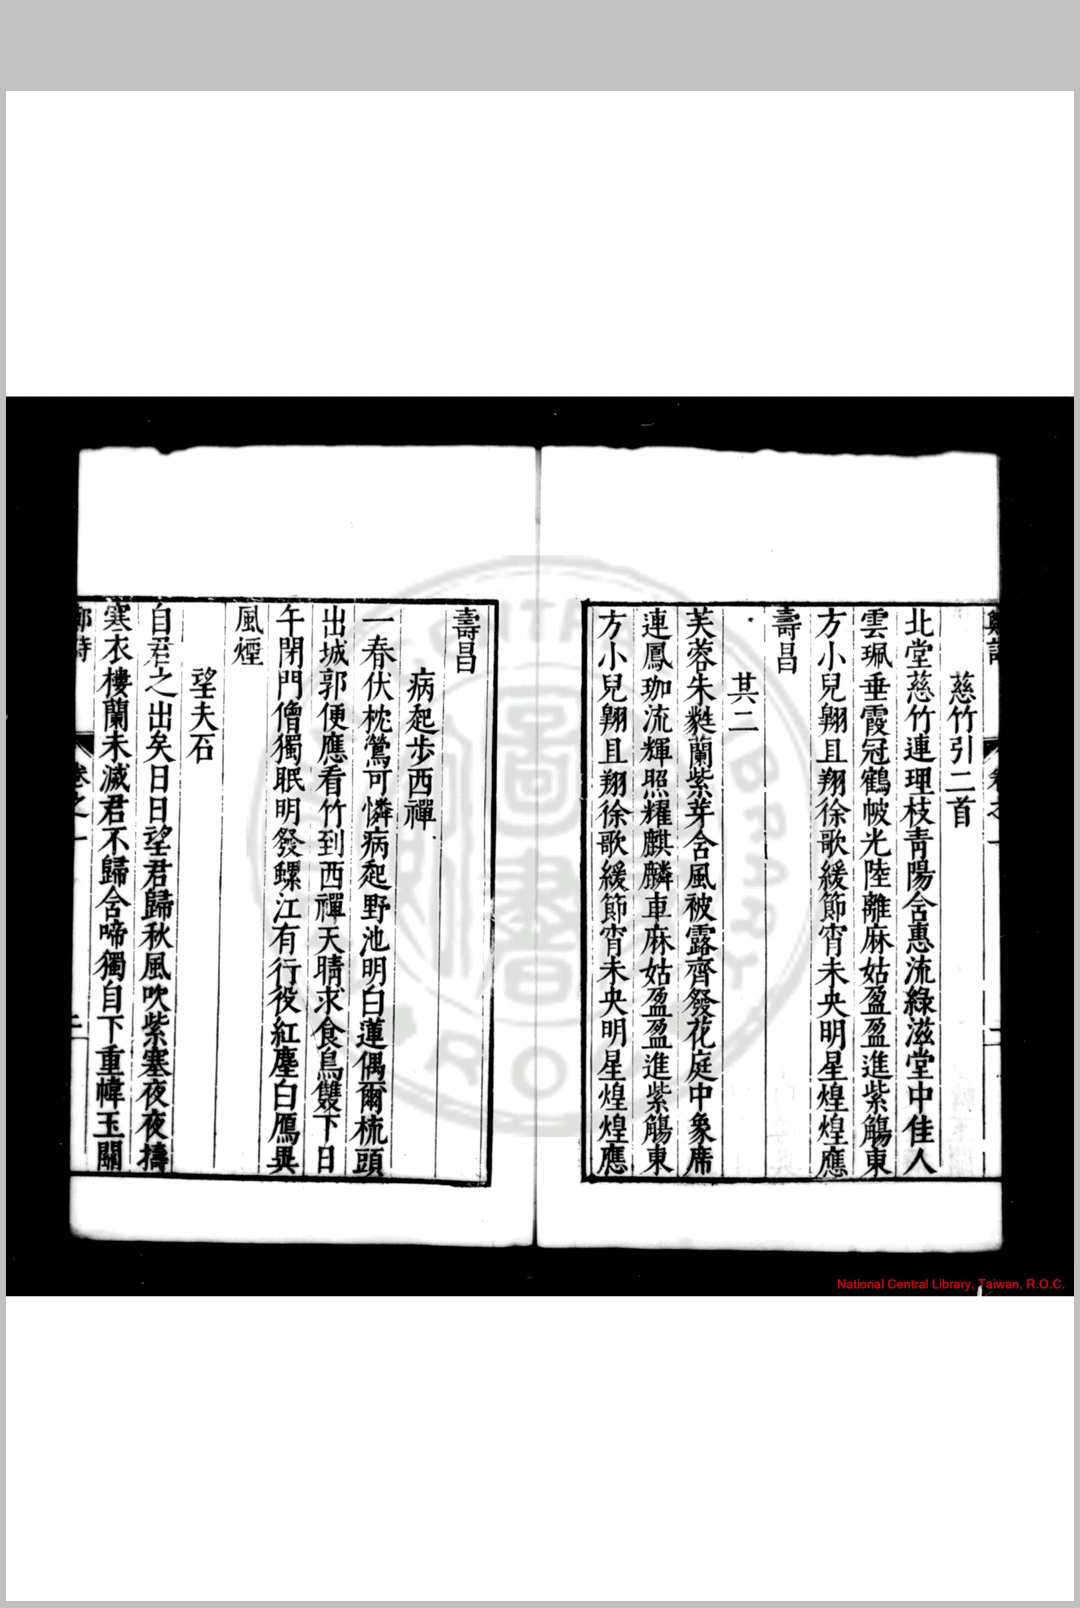 慈竹引二首
北堂慈竹連理枝青陽含惠流綠滋堂中佳人
雲珮垂霞冠鶴帔光陸離麻姑盈盈進紫觴東
方小兒翱且翔徐歌緩節宵未央明星煌煌應
壽昌
其二
芙蓉朱蕤蘭紫芽含風被露齊發花庭中象席
連鳳珈流輝照耀麒麟車麻姑盈盈進紫觴東
方小兒翱且翔徐歌緩節宵未央明星煌煌應
壽昌
病起步西禪
一春伏枕鶯可憐病起野池明白蓮偶爾梳頭
出城郭便應看竹到西禪天晴求食鳥雙下日
午閉門僧獨眠明發螺江有行役紅塵白鴈異
風煙
望夫石
自君之出矣日日望君歸秋風吹紫塞夜夜擣
寒衣樓蘭未滅君不歸含啼獨自下重幃玉關
鄭詩
卷之一
二
National Central Library, Taiwan, R.O.C.